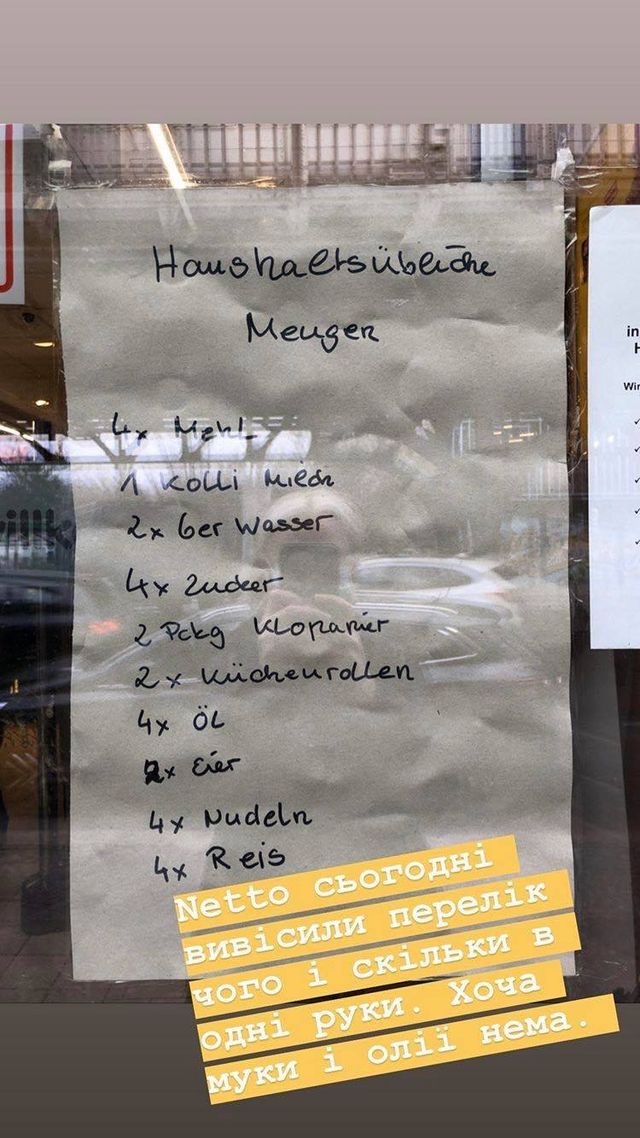 Haushaltsübliche
Mengen
4x Mehl
1 Kolli Milch
2x 6er Wasser
4x Zucker
2 Pckg Klopapier
2x Küchenrollen
4x Öl
2x Eier
4x Nudeln
4x Reis
in
H
Wir
Netto сьогодні
вивісили перелік
чого і скільки в
одні руки. Хоча
муки і олії нема.